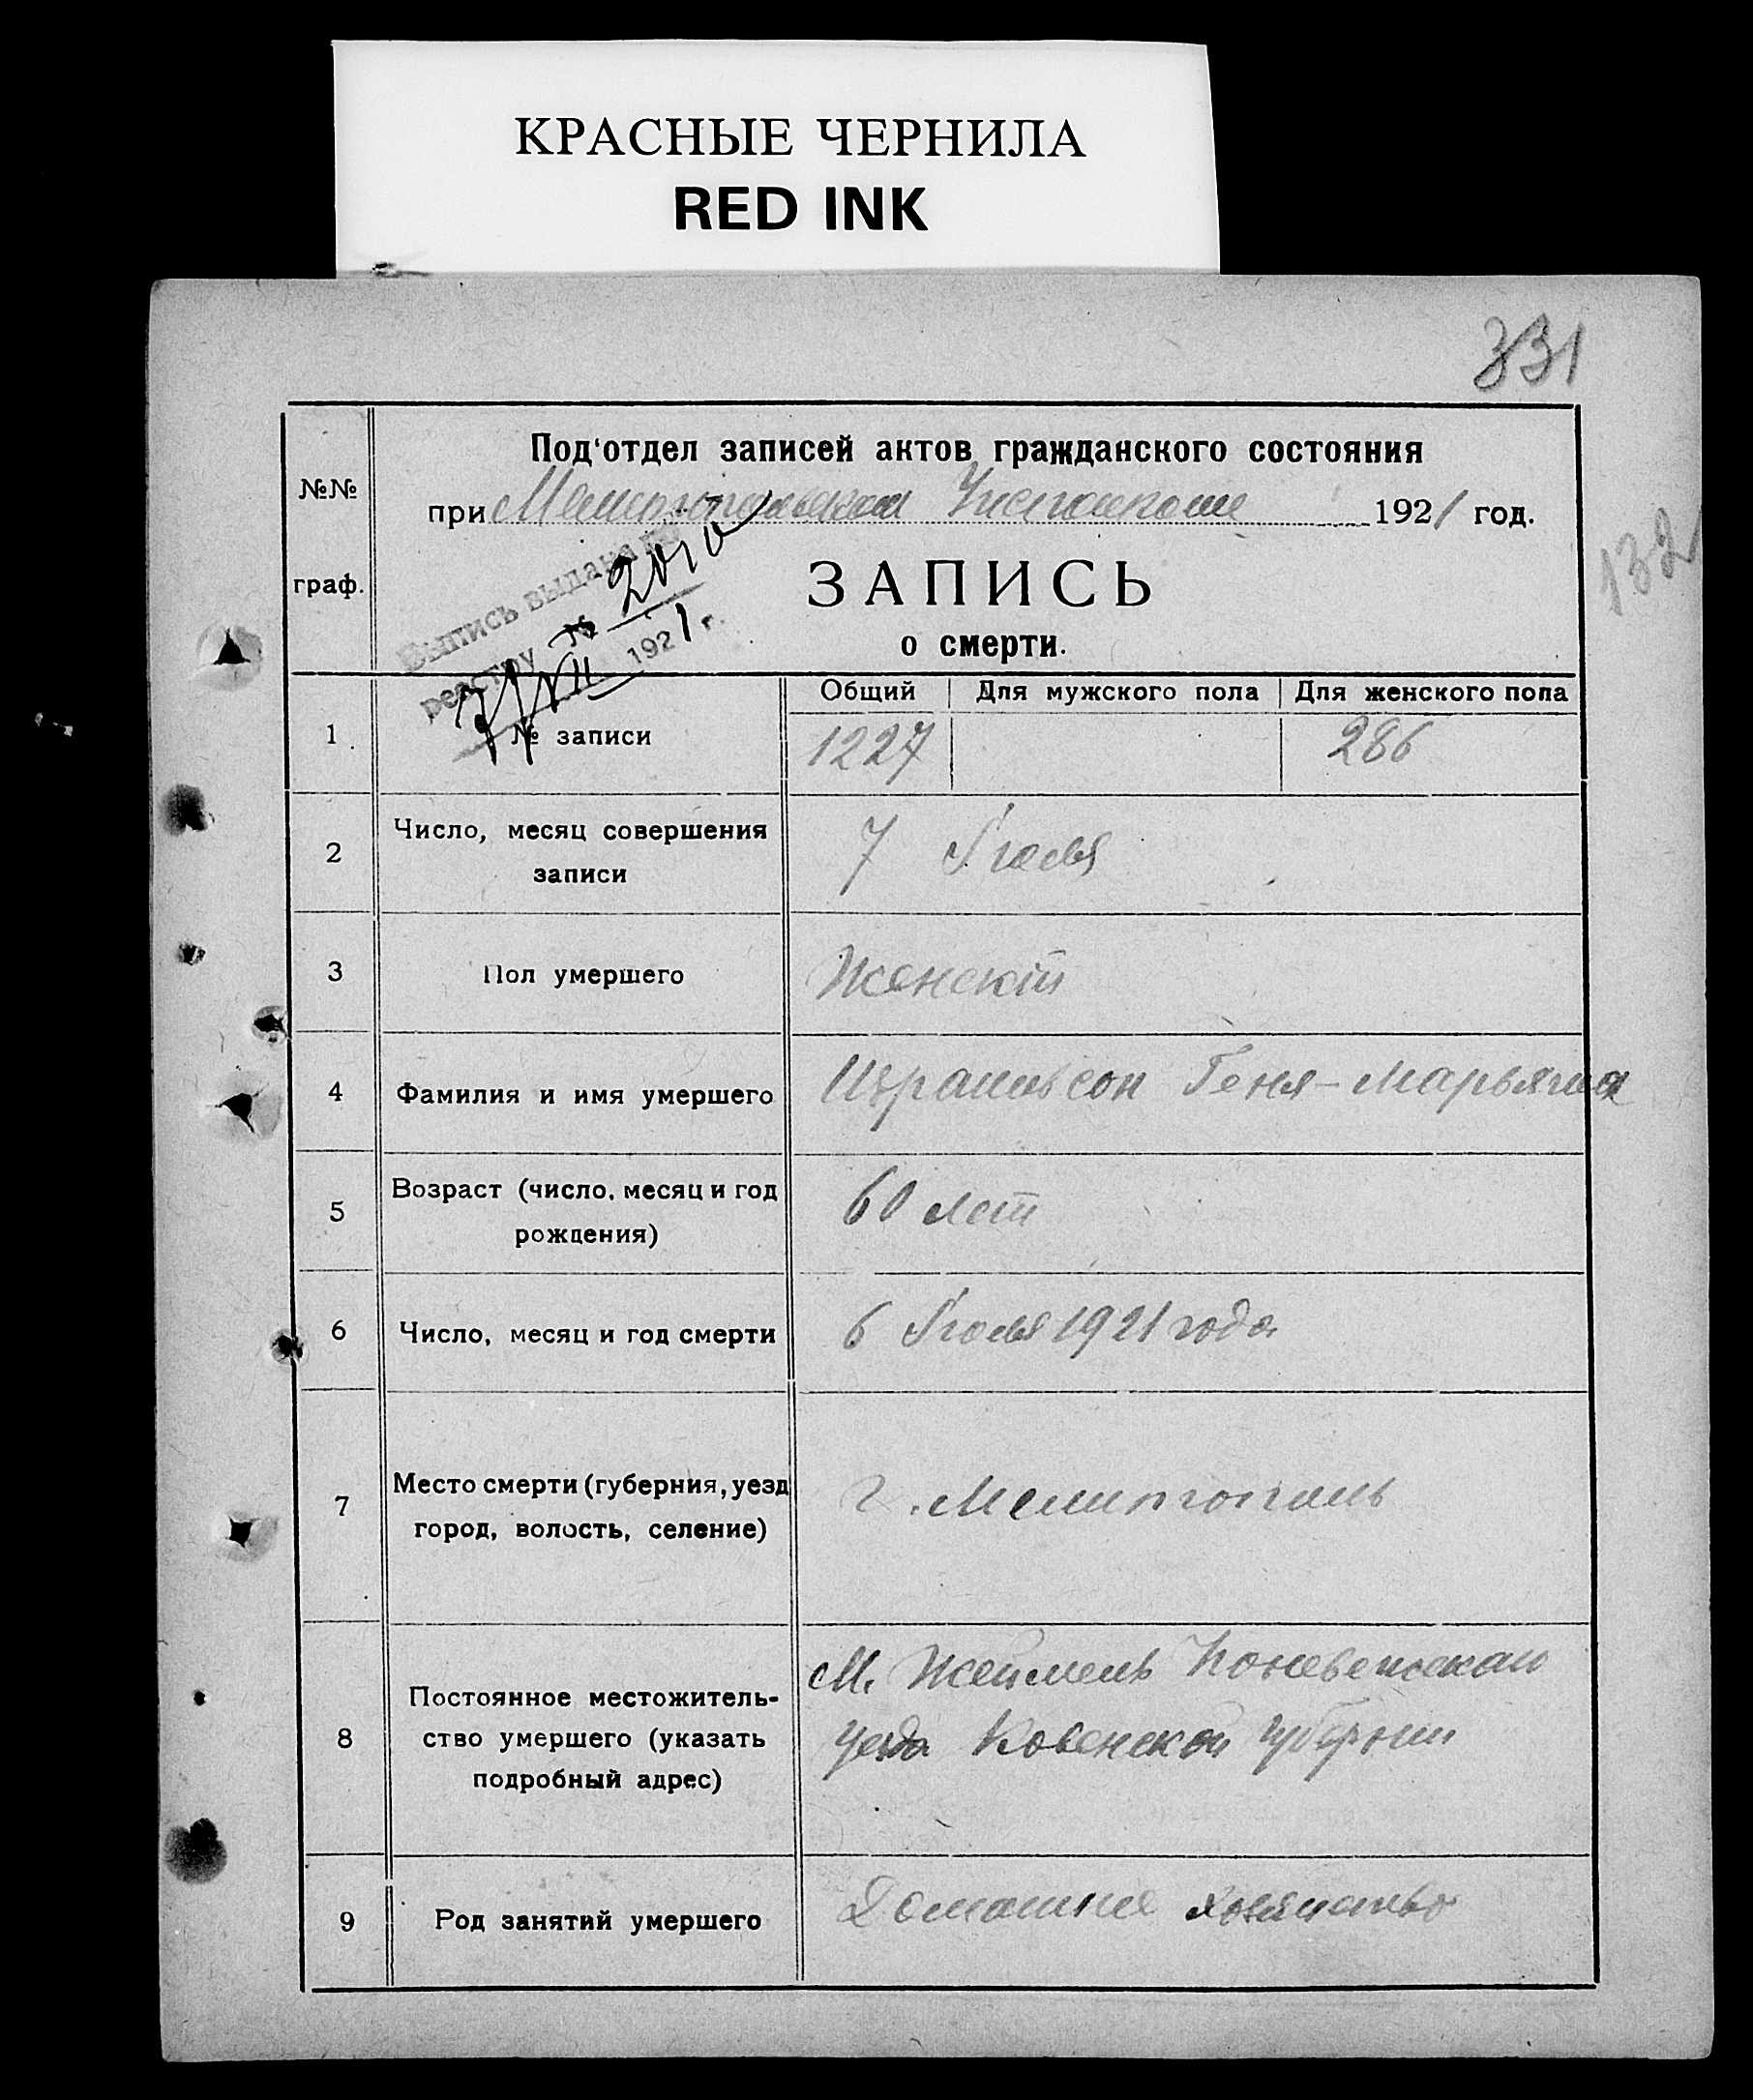 КРАСНЫЕ ЧЕРНИЛА
RED INK
331
Под'отдел записей актов гражданского состояния
№№
при Мелитопольском Уисполкоме 1921 год.
132
граф.
ЗАПИСЬ
о смерти.
Выпись выдана по
реестру № 2010
7/VII 1921 г.
Общий Для мужского пола Для женского пола
1 № записи 1227 286
2 Число, месяц совершения
записи
7 Июля
3 Пол умершего Женскій
4 Фамилия и имя умершего Израильсон Геня-Марьяша
5 Возраст (число, месяц и год
рождения)
60 лет
6 Число, месяц и год смерти 6 Июля 1921 года
7 Место смерти (губерния, уезд
город, волость, селение)
г. Мелитополь
8 Постоянное местожитель-
ство умершего (указать
подробный адрес)
М. Жеймель
уезда Ковенской губернии
9 Род занятий умершего Домашнее хозяйство